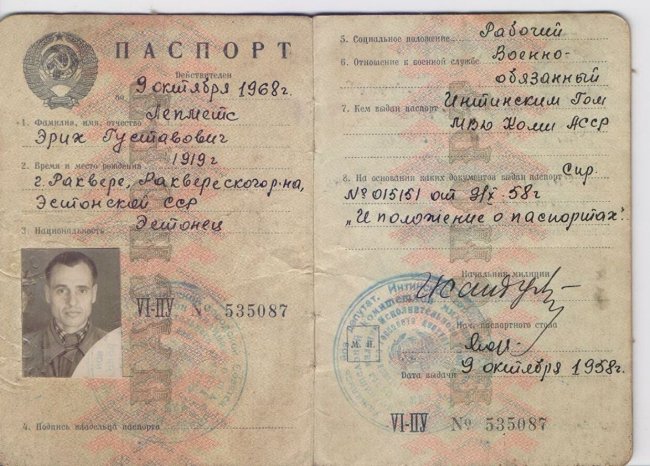 ПАСПОРТ
Действителен
по 9 октября 1968г.
1. Фамилия, имя, отчество Лепметс
Эрих Густавович
2. Время и место рождения 1919 г
г. Раквере, Раквереского р-на,
Эстонской ССР
3. Национальность Эстонец
VI-ПУ № 535087
4. Подпись владельца паспорта
5. Социальное положение Рабочий
6. Отношение к военной службе Военно-
обязанный
7. Кем выдан паспорт Интинским Гом
МВД Коми АССР
8. На основании каких документов выдан паспорт Спр.
№ 015151 от 9/X-58г
„И положение о паспортах".
Начальник милиции
Нач. паспортного стола
М. П.
Дата выдачи 9 октября 1958г.
VI-ПУ № 535087